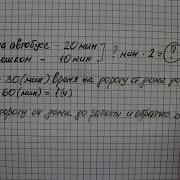 на автобусе - 20 мин
пешком - 10 мин ] ? мин · 2 = ?
= 30 (мин) время на дорогу от дома до
60 (мин) = 1 (ч)
дорогу от дома до работы и обратно